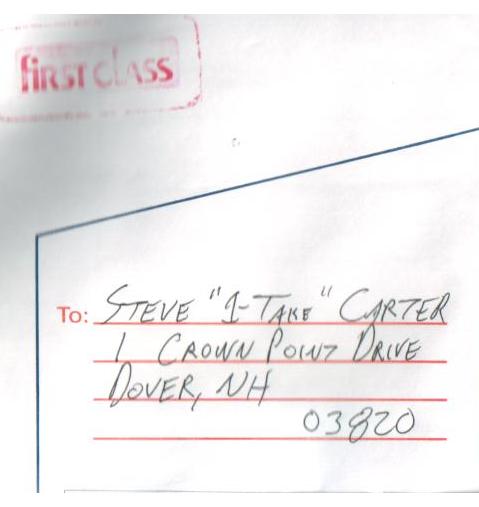 first class
To: STEVE "1-TAKE" CARTER
1 CROWN POINT DRIVE
DOVER, NH
03820